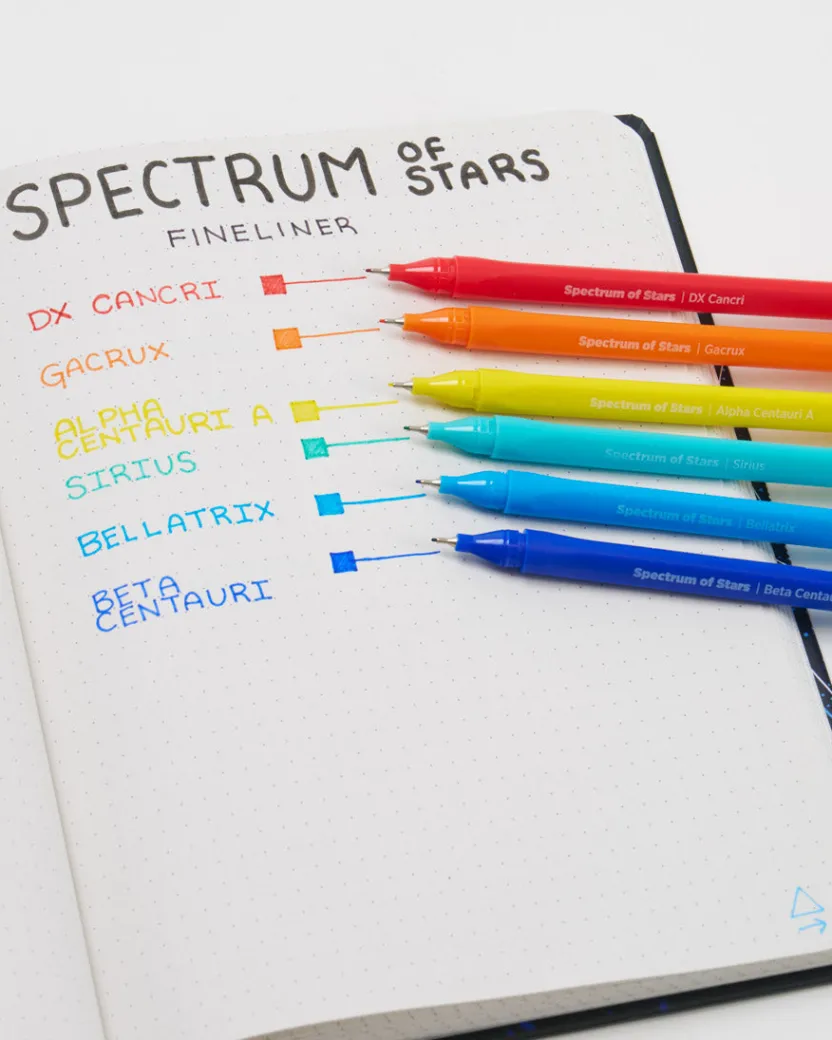 SPECTRUM OF
STARS
FINELINER
DX CANCRI
Spectrum of Stars | DX Cancri
GACRUX
Spectrum of Stars | Gacrux
ALPHA
CENTAURI A
Spectrum of Stars | Alpha Centauri A
SIRIUS
Spectrum of Stars | Sirius
BELLATRIX
Spectrum of Stars | Bellatrix
BETA
CENTAURI
Spectrum of Stars | Beta Centau